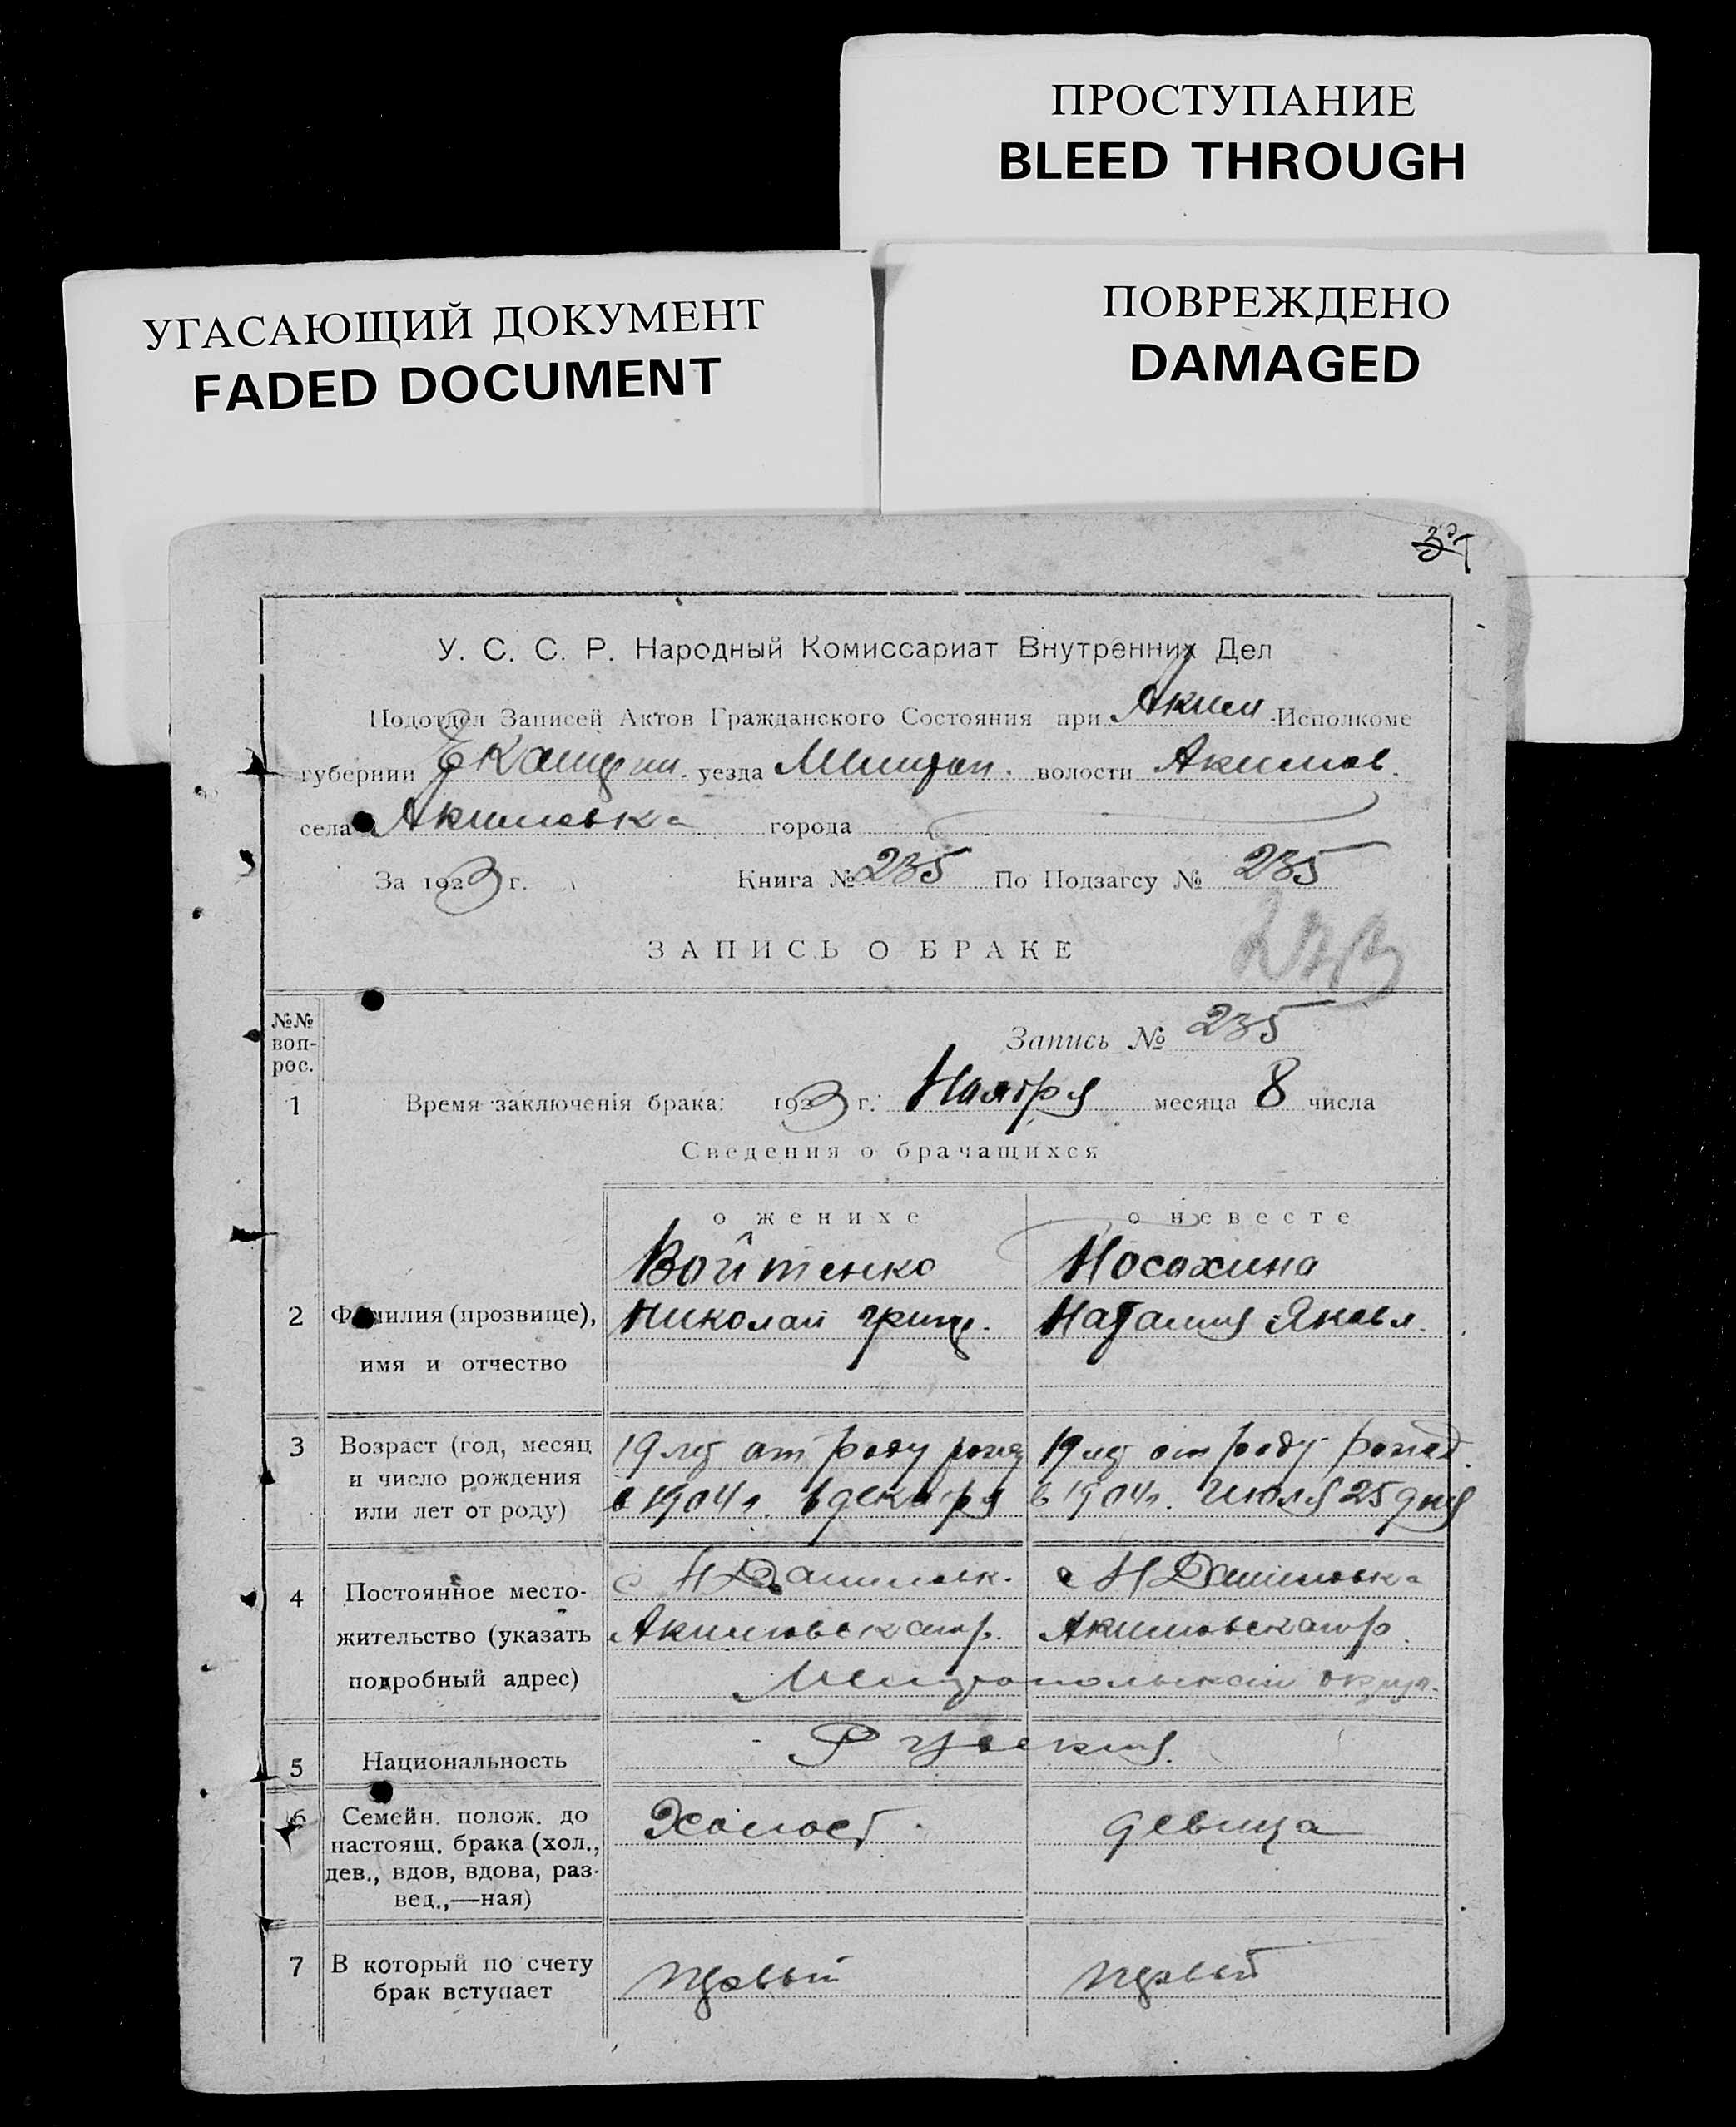 ПРОСТУПАНИЕ
BLEED THROUGH
УГАСАЮЩИЙ ДОКУМЕНТ
FADED DOCUMENT
ПОВРЕЖДЕНО
DAMAGED
У. С. С. Р. Народный Комиссариат Внутренних Дел
Подотдел Записей Актов Гражданского Состояния при Аким. Исполкоме
губернии Екатерин. уезда Мелитоп. волости Акимов.
села Акимовка города
За 1923 г. Книга № 235 По Подзагсу № 235
ЗАПИСЬ О БРАКЕ
№№ воп-рос.
Запись № 235
1 Время заключенія брака: 1923 г. Ноября месяца 8 числа
Сведения о брачащихся
о женихе о невесте
Войтенко Носохина
2 Фамилия (прозвище), Николай Григ. Наталия Яковл.
имя и отчество
3 Возраст (год, месяц 19 лет от роду рожд 19 лет от роду рожд.
и число рождения в 1904 г. 6 декабря в 1904 г. Июля 25 дня
или лет от роду)
4 Постоянное место- с Н Даниловк. с Н Даниловка
жительство (указать Акимовск Акимовск
подробный адрес) Мелитопольской округ.
5 Национальность Руские
6 Семейн. полож. до Холост. девица
настоящ. брака (хол.,
дев., вдов, вдова, раз-
вед.,—ная)
7 В который по счету первый первый
брак вступает